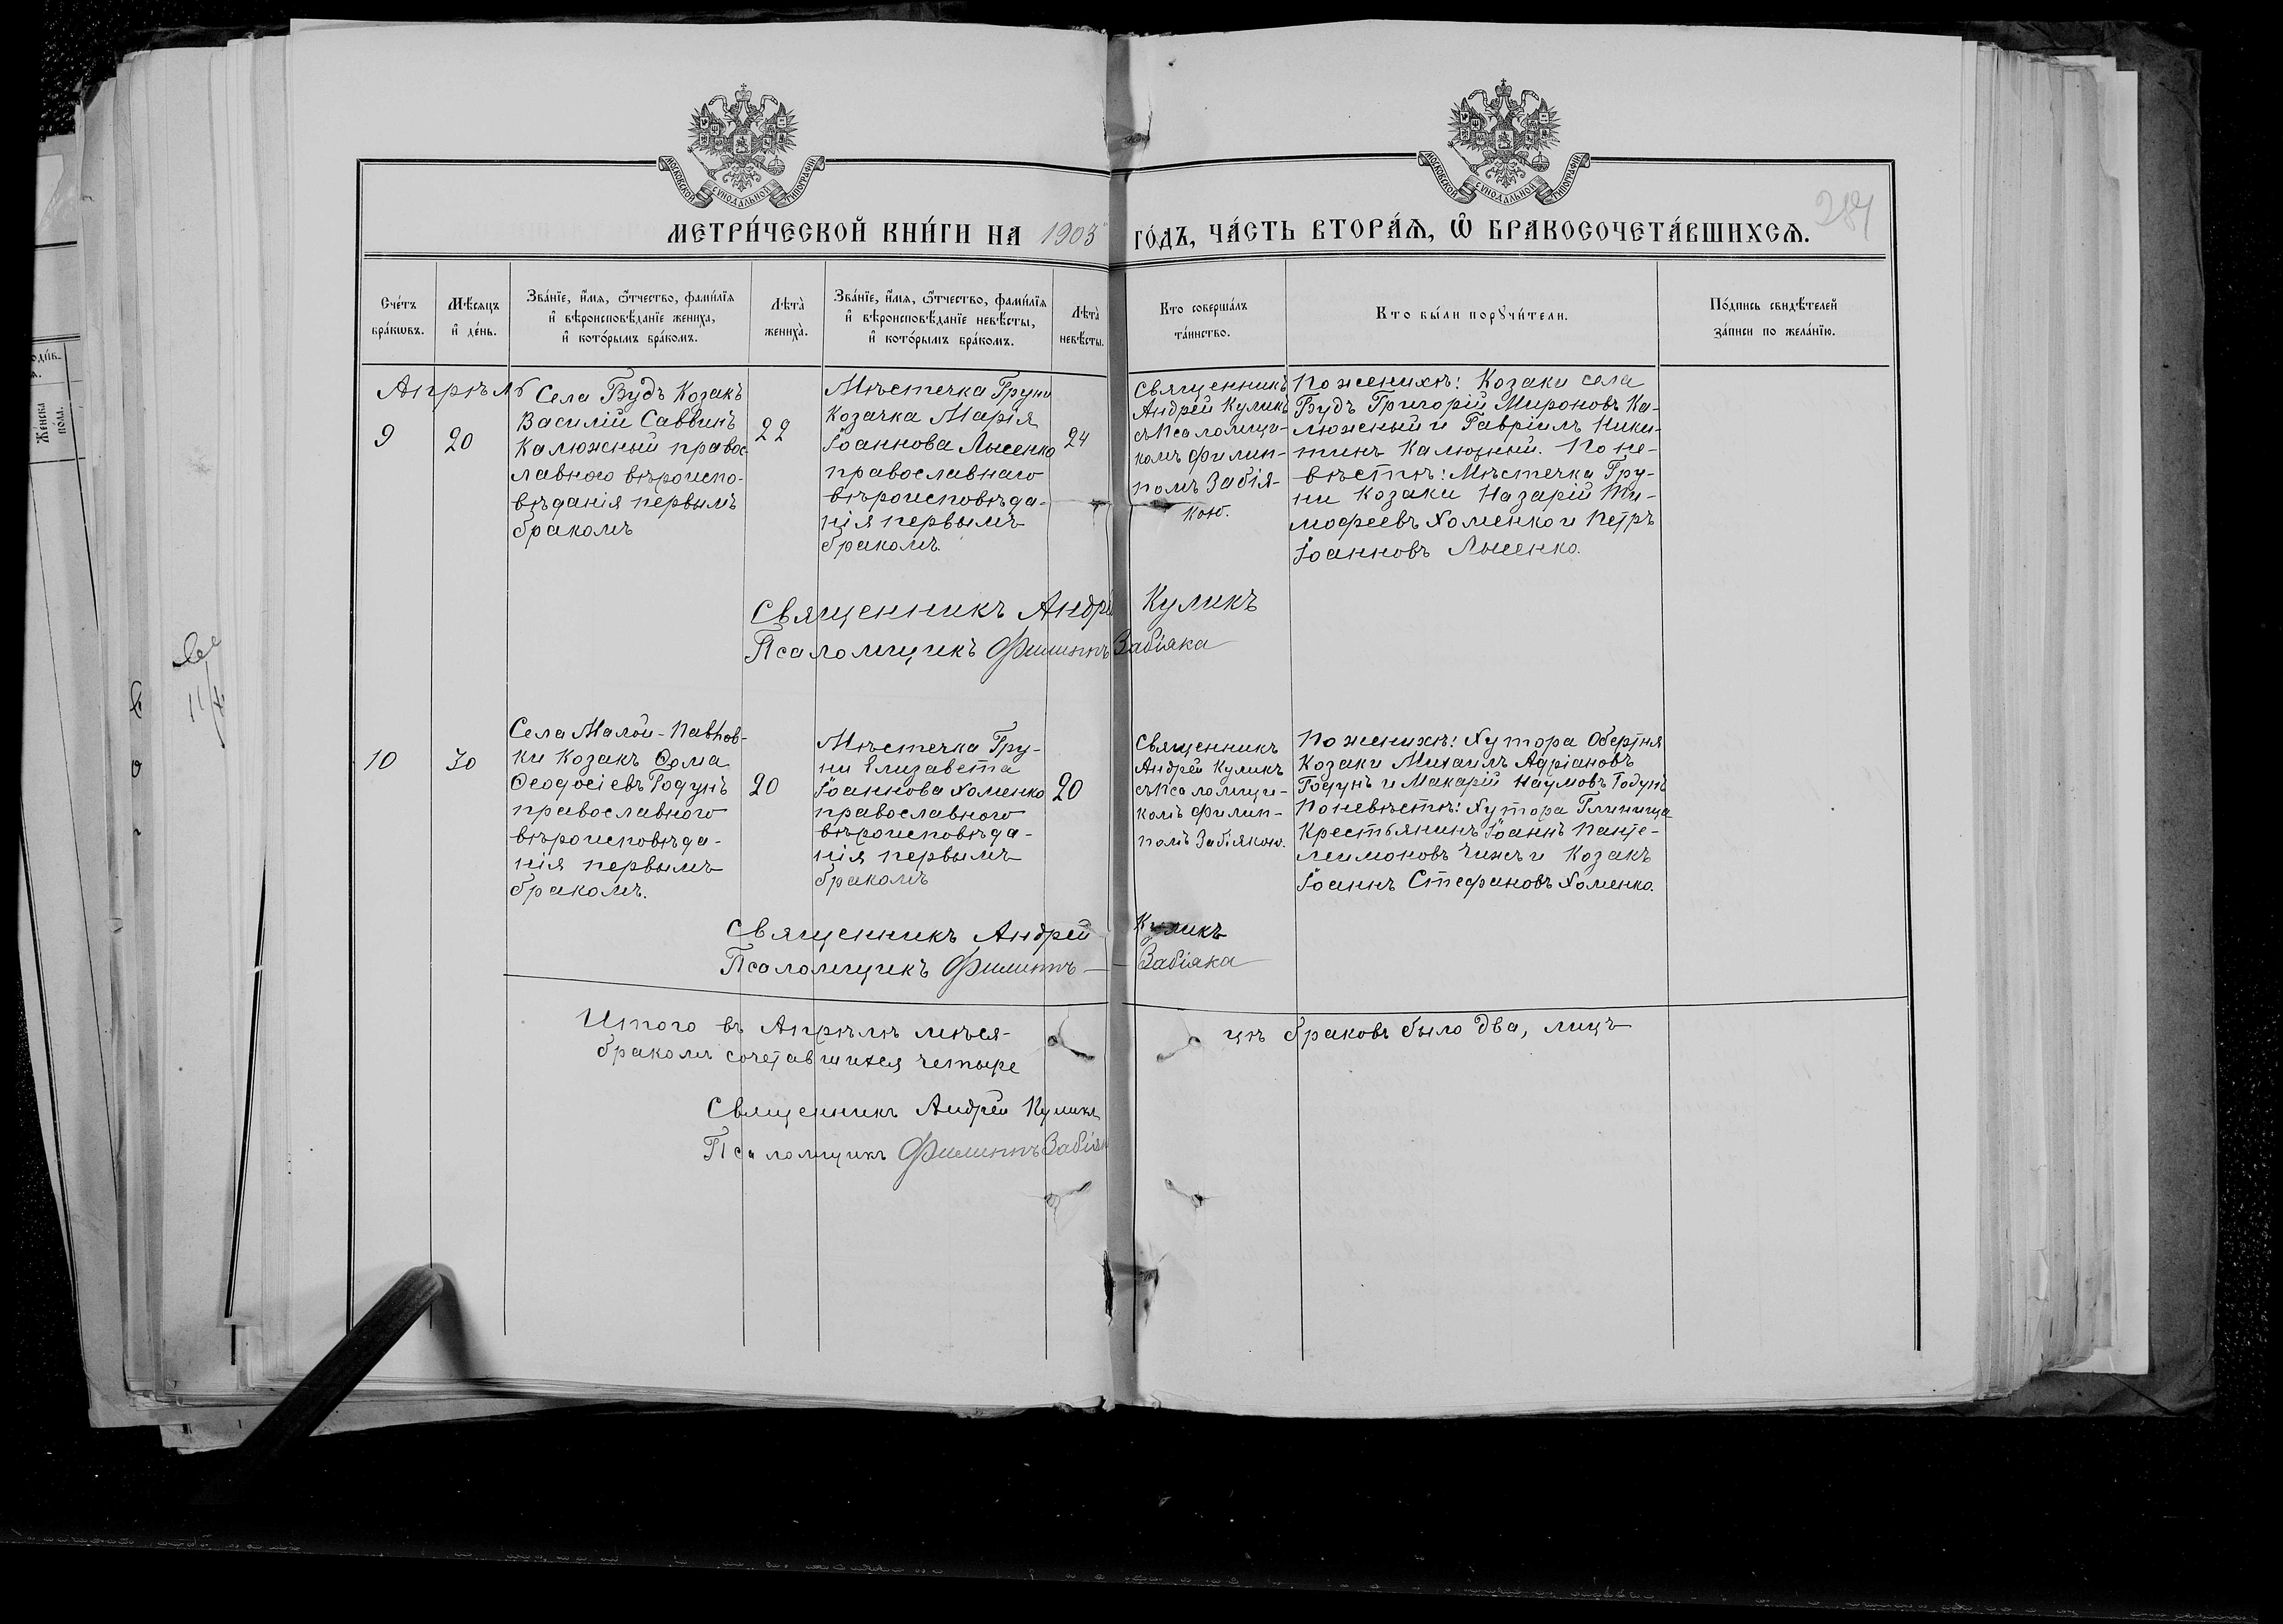 МОСКОВСКОЙ СѴНОДАЛЬНОЙ ТИПОГРАФІИ
МОСКОВСКОЙ СѴНОДАЛЬНОЙ ТИПОГРАФІИ
284
МЕТРИ́ЧЕСКОЙ КНИ́ГИ НА 1905 ГО́ДЪ, ЧА́СТЬ ВТОРА́Ѧ, Ѽ БРАКОСОЧЕТА́ВШИХСѦ.
Сче́тъ
бра́кѡвъ.
Мѣ́сяцъ
и҆ де́нь.
Зва́нїе, и҆́мя, ѻ҆́тчество, фами́лїя
и҆ вѣроисповѣ́данїе жениха̀,
и҆ кото́рымъ бра́комъ.
Лѣта̀
жениха̀.
Зва́нїе, и҆́мя, ѻ҆́тчество, фами́лїя
и҆ вѣроисповѣ́данїе невѣ́сты,
и҆ кото́рымъ бра́комъ.
Лѣта̀
невѣ́сты.
Кто соверша́лъ
та́инство.
Кто бы́ли порꙋчи́тели.
По́дпись свидѣ́телей
за́писи по жела́нїю.
Апрѣль
9
20
Села Будъ Козакъ
Василій Саввинъ
Калюжный правос
лавного вѣроиспо-
вѣданія первымъ
бракомъ
22
Мѣстечка Груни
Козачка Марія
Іоаннова Лысенко
православнаго
вѣроисповѣда-
нія первымъ
бракомъ.
24
Священникъ
Андрей Куликъ
съ Псаломщи-
комъ Филип-
помъ Забія-
кою.
По женихѣ: Козаки села
Будъ Григорій Мироновъ Ка-
люжный и Гавріилъ Ники-
тинъ Калюжный. По не-
вѣстѣ: Мѣстечка Гру-
ни Козаки Назарій Ти-
мофеевъ Хоменко и Петръ
Іоанновъ Лысенко.
Священникъ Андрей Куликъ
Псаломщикъ Филиппъ Забіяка
10
30
Села Малой-Павлов-
ки Козакъ Ѳома
Ѳеодосіевъ Годунъ
православного
вѣроисповѣда-
нія первымъ
бракомъ.
20
Мѣстечка Гру-
ни Елизавета
Іоаннова Хоменко
православного
вѣроисповѣда-
нія первымъ
бракомъ
20
Священникъ
Андрей Куликъ
съ Псаломщи-
комъ Филип-
помъ Забіякою.
По женихѣ: Хутора Оберѣня
Козаки Михаилъ Адріановъ
Годунъ и Макарій Наумовъ Годунъ
По невѣстѣ: Хутора Глиница
Крестьянинъ Іоаннъ Панте-
леимоновъ Чижъ и Козакъ
Іоаннъ Стефановъ Хоменко.
Священникъ Андрей Куликъ
Псаломщикъ Филиппъ Забіяка
Итого въ Апрѣлѣ мѣся- цѣ браковъ было два, лицъ
бракомъ сочетавшихся четыре
Священникъ Андрей Куликъ
Псаломщикъ Филиппъ Забіяка
Же́нска
пола.